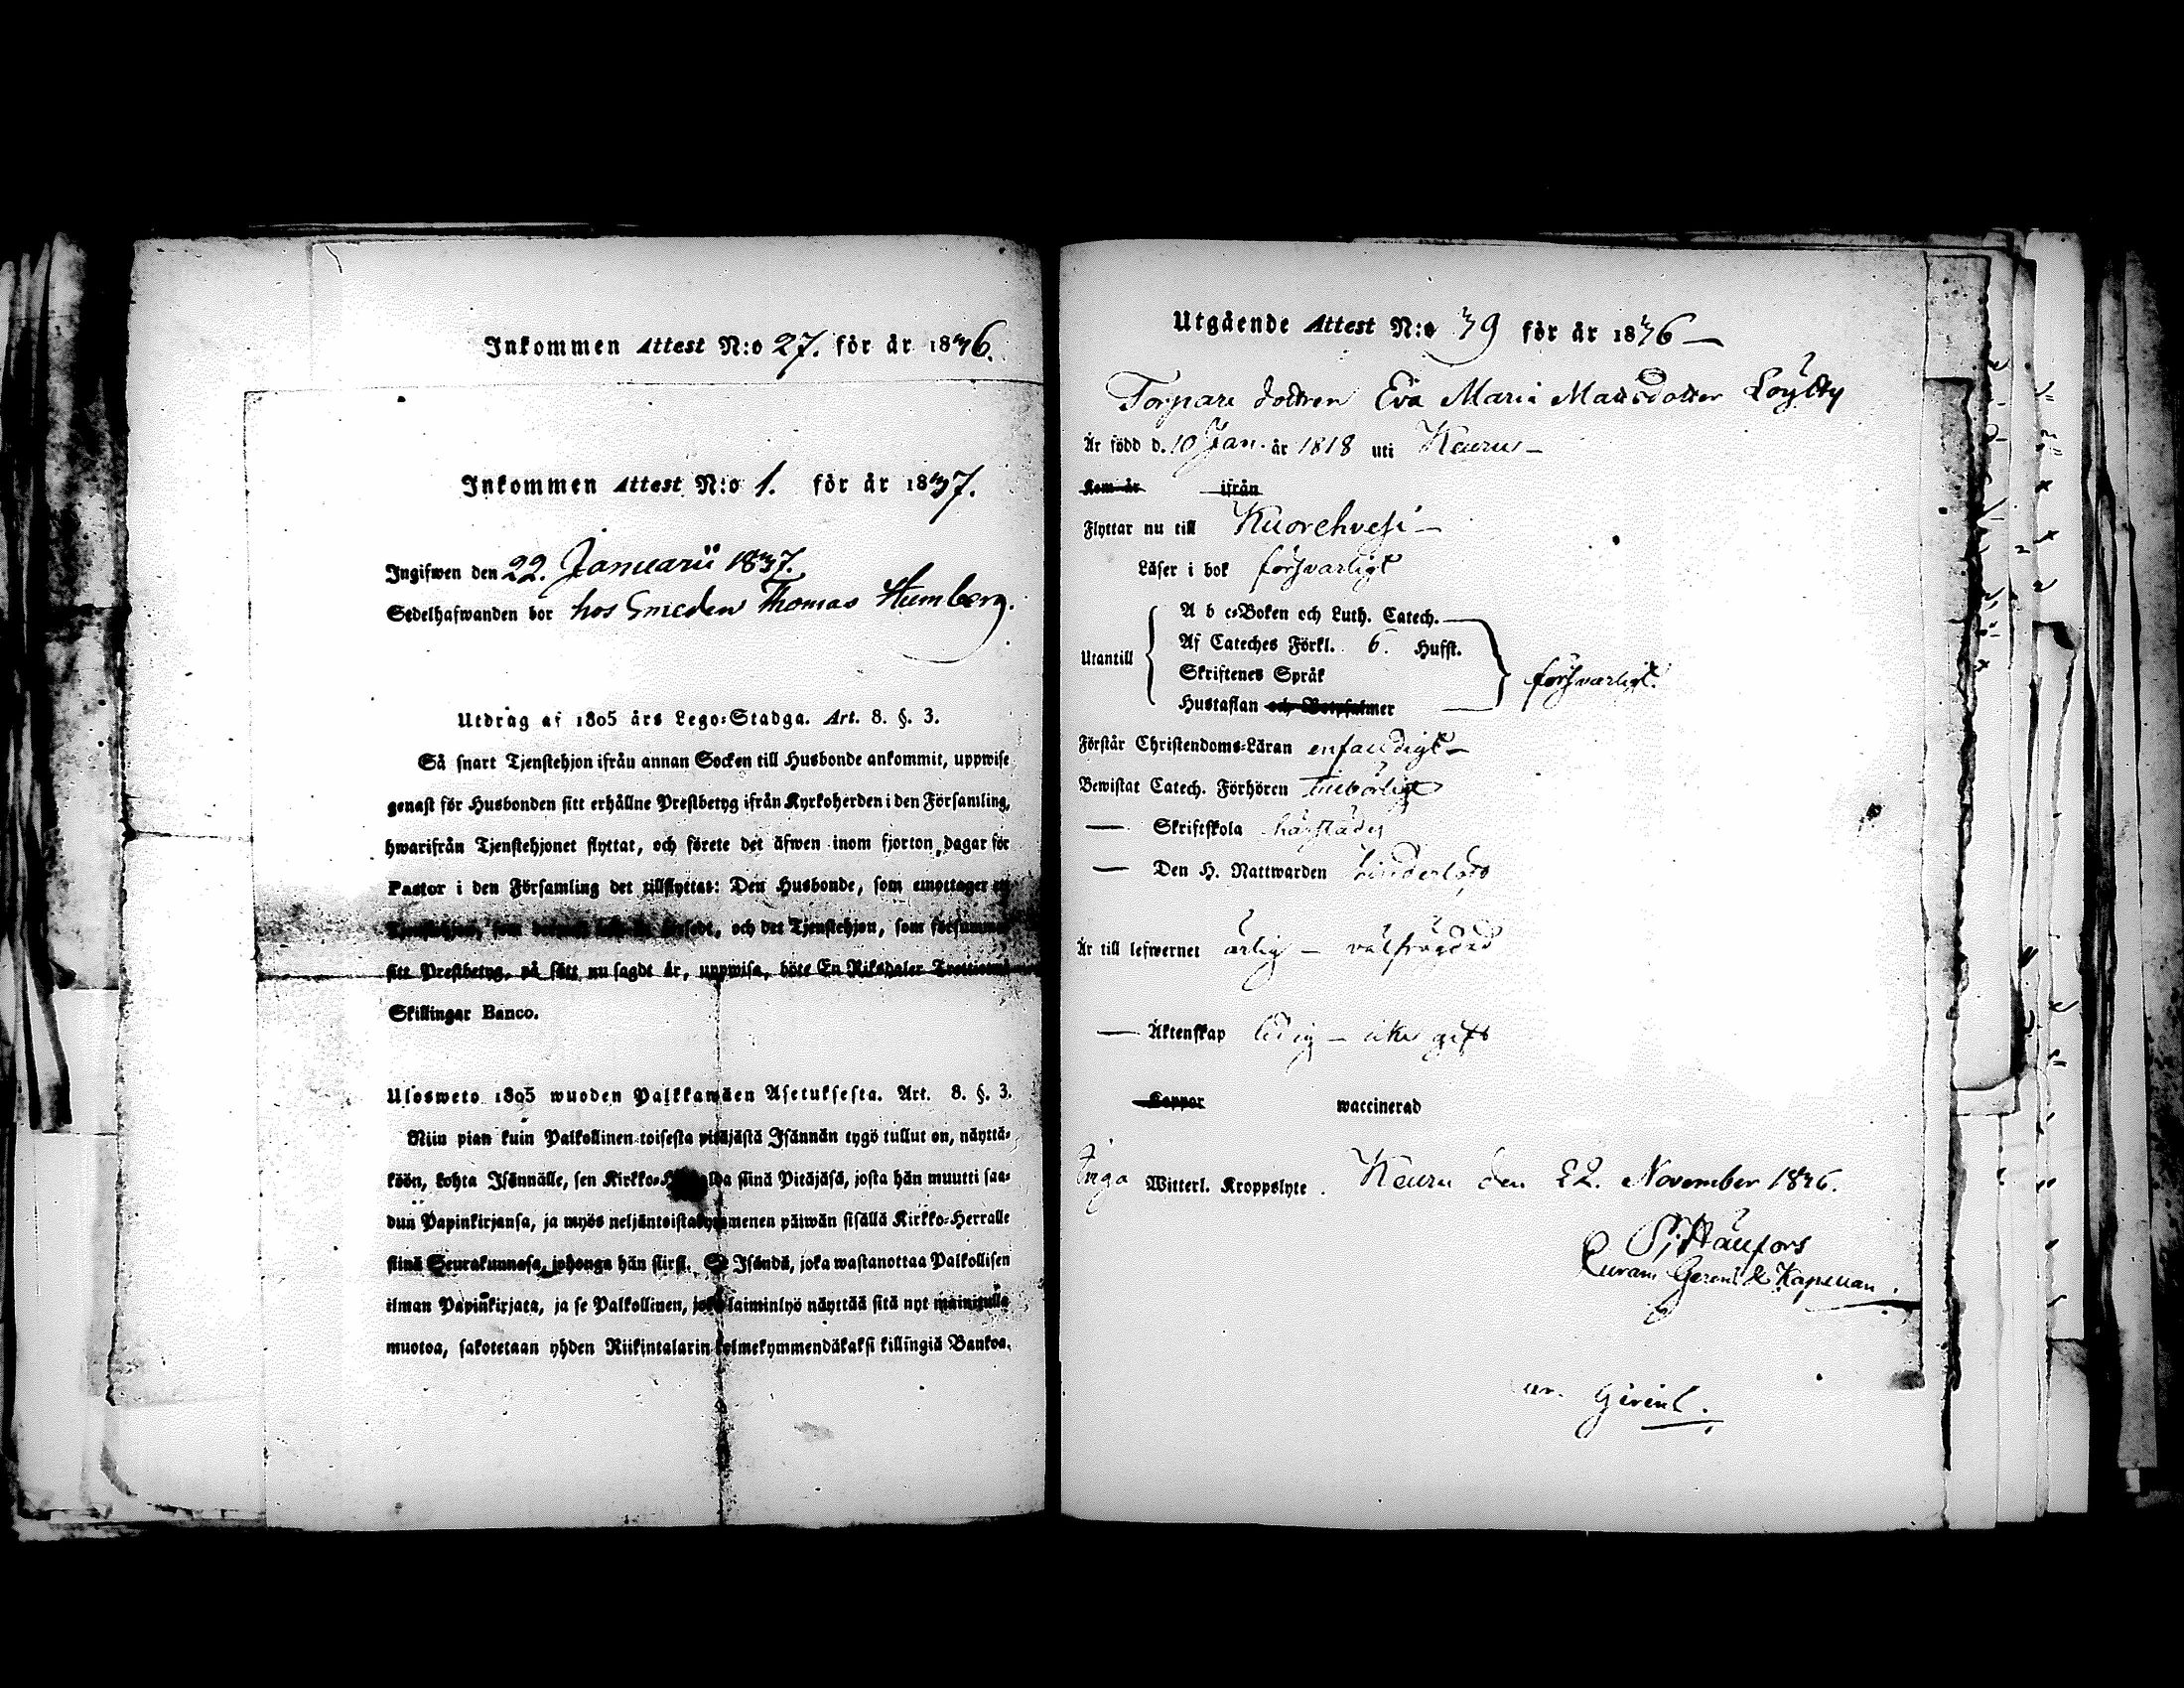 Inkommen Attest N:o 27. för år 1836.
Inkommen Attest N:o 1. för år 1837.
Ingifwen den 22. Januarii 1837.
Sedelhafwanden bor hos Smeden Thomas Stumberg.
Utdrag af 1805 års Lego-Stadga. Art. 8. §. 3.
Så snart Tjenstehjon ifrån annan Socken till Husbonde ankommit, uppwise
genast för Husbonden sitt erhållne Prestbetyg ifrån Kyrkoherden i den Församling,
hwarifrån Tjenstehjonet flyttat, och förete det äfwen inom fjorton dagar för
Pastor i den Församling det tillflyttat: Den Husbonde, som emottager ett
Tjenstehjon, som, och det Tjenstehjon, som försummar
sitt Prestbetyg, på sätt nu sagdt är, uppwisa, böte En Riksdaler Trettiotwå
Skillingar Banco.
Ulosweto 1805 wuoden Palkkawäen Asetuksesta. Art. 8. §. 3.
Niin pian kuin Palkollinen toisesta pitäjästä Isännän tygö tullut on, näyttä-
köön, kohta Isännälle, sen Kirkko- siinä Pitäjäsä, josta hän muutti saa-
dun Papinkirjansa, ja myös neljäntoistakymmenen päiwän sisällä Kirkko-Herralle
siinä Seurakunnasa, johonga hän siirsi. Se Isändä, joka wastanottaa Palkollisen
ilman Papinkirjata, ja se Palkollinen, joka laiminlyö näyttää sitä nyt mainitulla
muotoa, sakotetaan yhden Riikintalarin kolmekymmendäkaksi killingiä Bankoa.
Utgående Attest N:o 39 för år 1836 —
Torpare dottren Eva Maria Matsdotter Löytty
Är född d. 10 Jan. år 1818 uti Keuru —
Kom år ifrån
Flyttar nu till Kuorehvesi —
Läser i bok försvarligt
A b c-Boken och Luth. Catech.
Af Cateches Förkl. 6. Hufst.
Utantill
Skriftenes Språk
försvarligt.
Hustaflan och Botpsalmer
Förstår Christendoms-Läran enfaldigt —
Bewistat Catech. Förhören tillbörligt
— Skriftskola härstädes
— Den H. Nattwarden
Är till lefwernet ärlig — välfrägdad
— Äktenskap ledig — icke gift
Koppor waccinerad
Inga Witterl. Kroppslyte. Keuru den 22. November 1836.
Geren. & Kapellan.
Gerent.